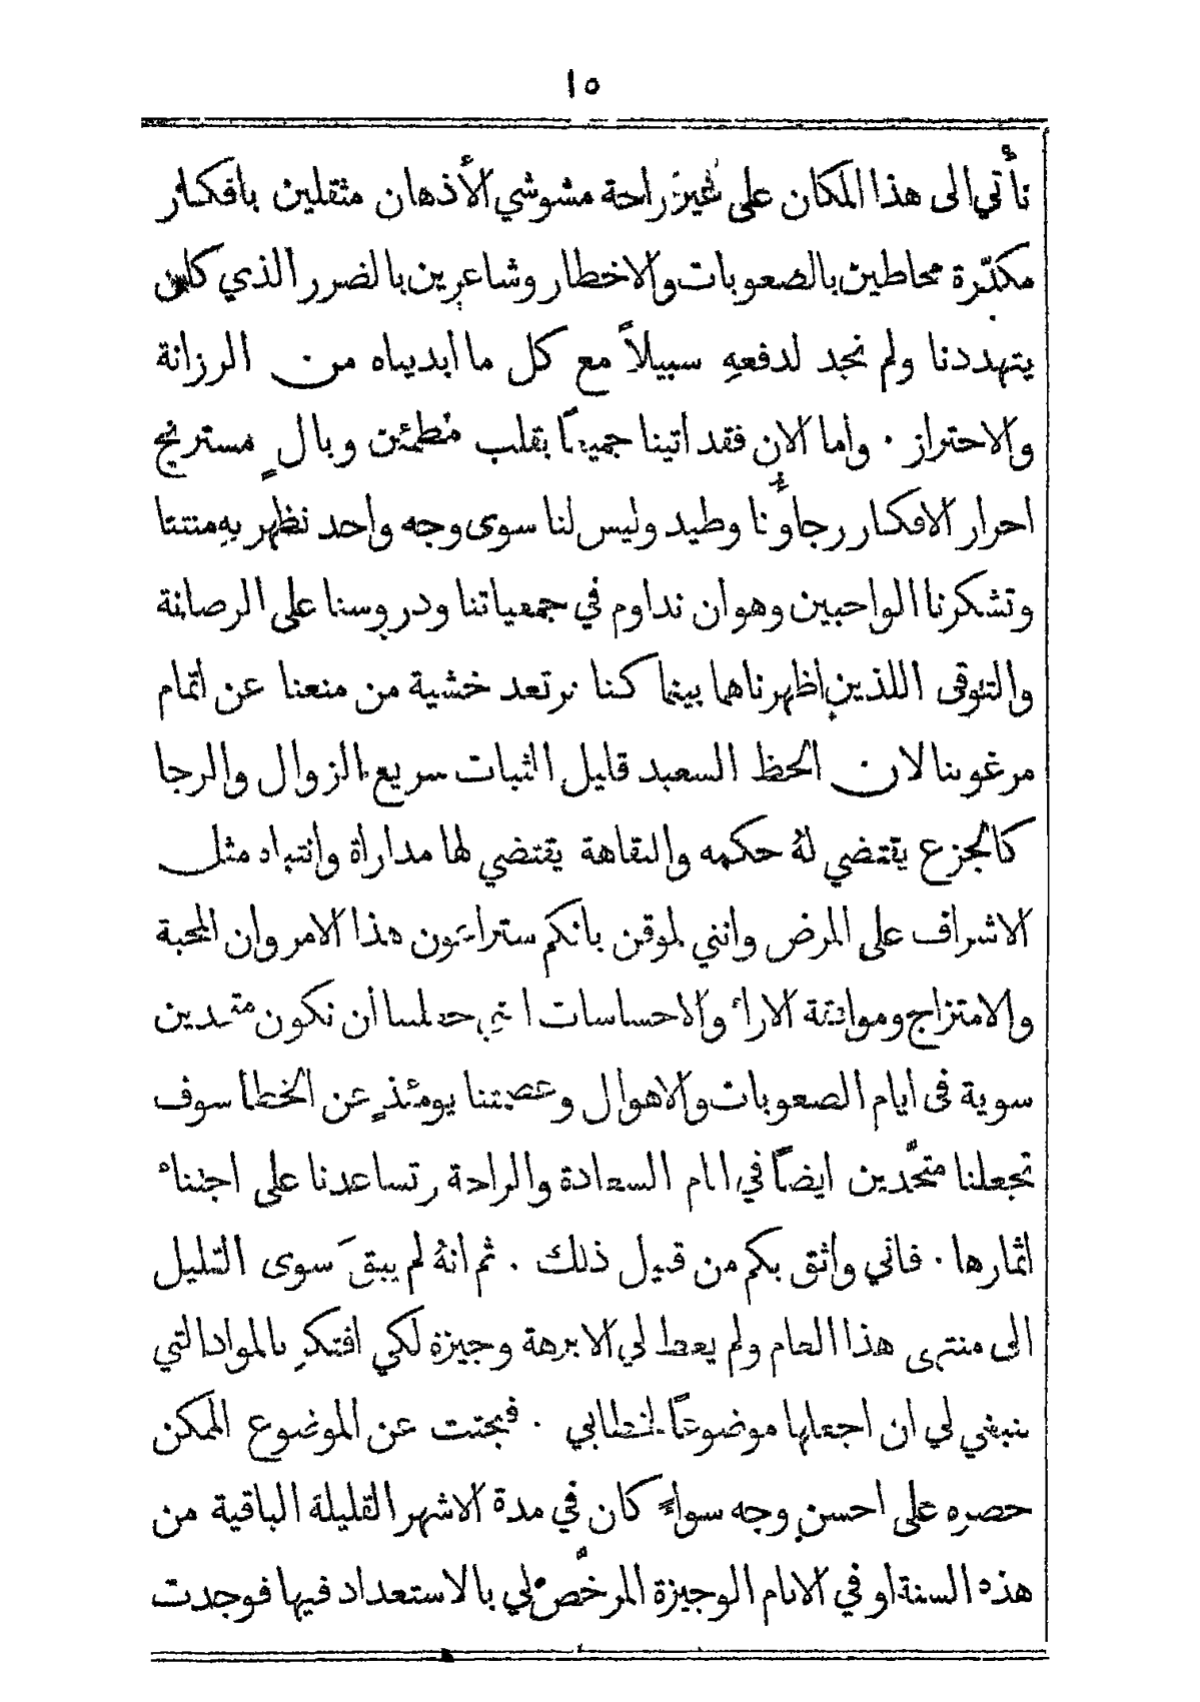 ١٥
نأتي الى هذا المكان على غير راحة مشوشي الأذهان مثقلين بافكار
مكدّرة محاطين بالصعوبات والاخطار وشاعرين بالضرر الذي كان
يتهددنا ولم نجد لدفعهِ سبيلاً مع كل ما ابديناه من الرزانة
والاحتراز . واما الان فقد اتينا جميعاً بقلب مطمئن وبالٍ مستريح
احرار الافكار رجاؤُنا وطيد وليس لنا سوى وجه واحد نظهر بهِ منتنا
وتشكرنا الواجبين وهو ان نداوم في جمعياتنا ودروسنا على الرصانة
والتوقى اللذين اظهرناهما بينما كنا نرتعد خشية من منعنا عن اتمام
مرغوبنا لان الحظ السعيد قليل الثبات سريع الزوال والرجا
كالجزع يقتضي لهُ حكمه والنقاهة يقتضي لها مداراة وانتباه مثل
الاشراف على المرض وانني لموقن بانكم ستراعون هذا الامر وان المحبة
والامتزاج وموافقة الاراء والاحساسات التي جعلتنا ان نكون متحدين
سوية فى ايام الصعوبات والاهوال وعصمتنا يومئذٍ عن الخطا سوف
تجعلنا متحَّدين ايضاً في ايام السعادة والراحة وتساعدنا على اجتناء
اثمارها . فاني واثق بكم من قبيل ذلك . ثم انهُ لم يبقَ سوى القليل
الى منتهى هذا العام ولم يعط لي الا برهة وجيزة لكي افتكر بالمواد التي
ينبغي لي ان اجعلها موضوعاً لخطابي . فبحثت عن الموضوع الممكن
حصره على احسن وجه سواءً كان في مدة الاشهر القليلة الباقية من
هذه السنة او في الايام الوجيزة المرخَّص لي بالاستعداد فيها فوجدت